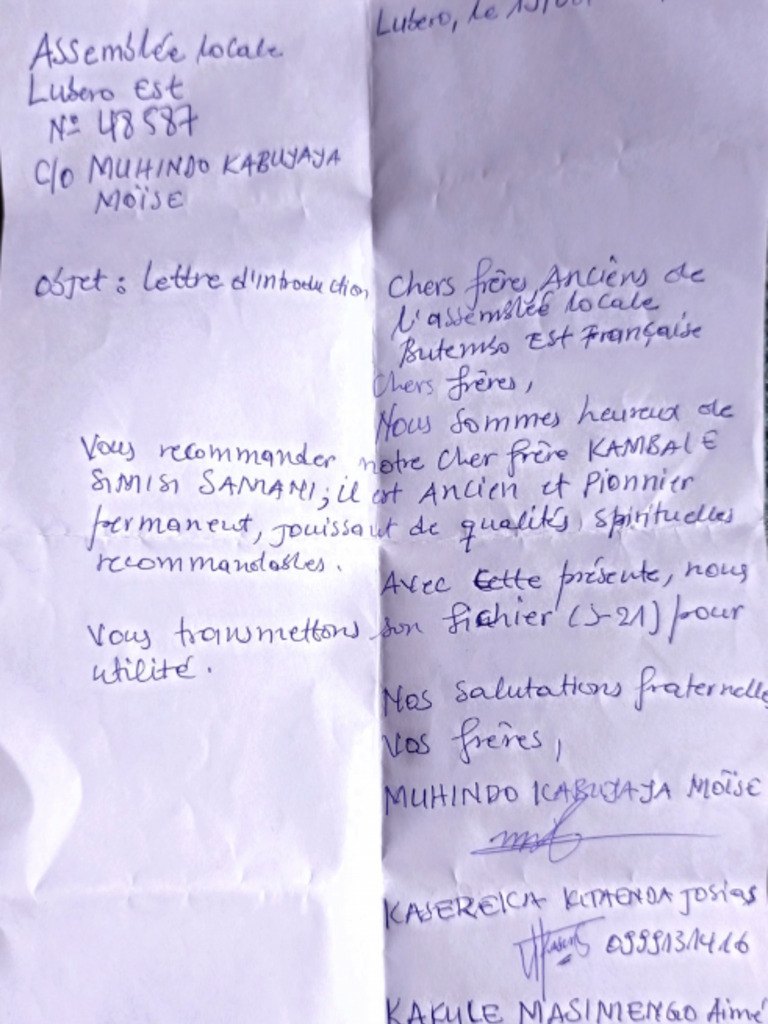 Lubero, le
Assemblée locale
Lubero Est
N° 48587
C/o MUHINDO KABUYAYA
MOÏSE
Objet : Lettre d'introduction
Chers frères, Anciens de
l'assemblée locale
Butembo Est Française
Chers frères,
Nous sommes heureux de
vous recommander notre cher frère KAMBALE
SIMISI SAMANI; il est Ancien et Pionnier
permanent, jouissant de qualités spirituelles
recommandables.
Avec cette présente, nous
vous transmettons son fichier (S-21) pour
utilité.
Nos salutations fraternelle
Vos frères,
MUHINDO KABUYAYA MOÏSE
KASEREKA KITAENDA Josias
0999131416
KAKULE MASIMENGO Aimé